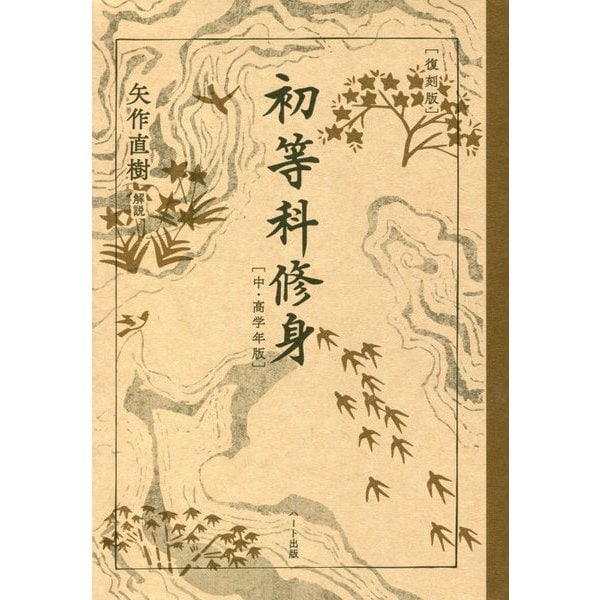 ［復刻版］
初等科修身
［中・高学年版］
矢作直樹［解説］
ハート出版